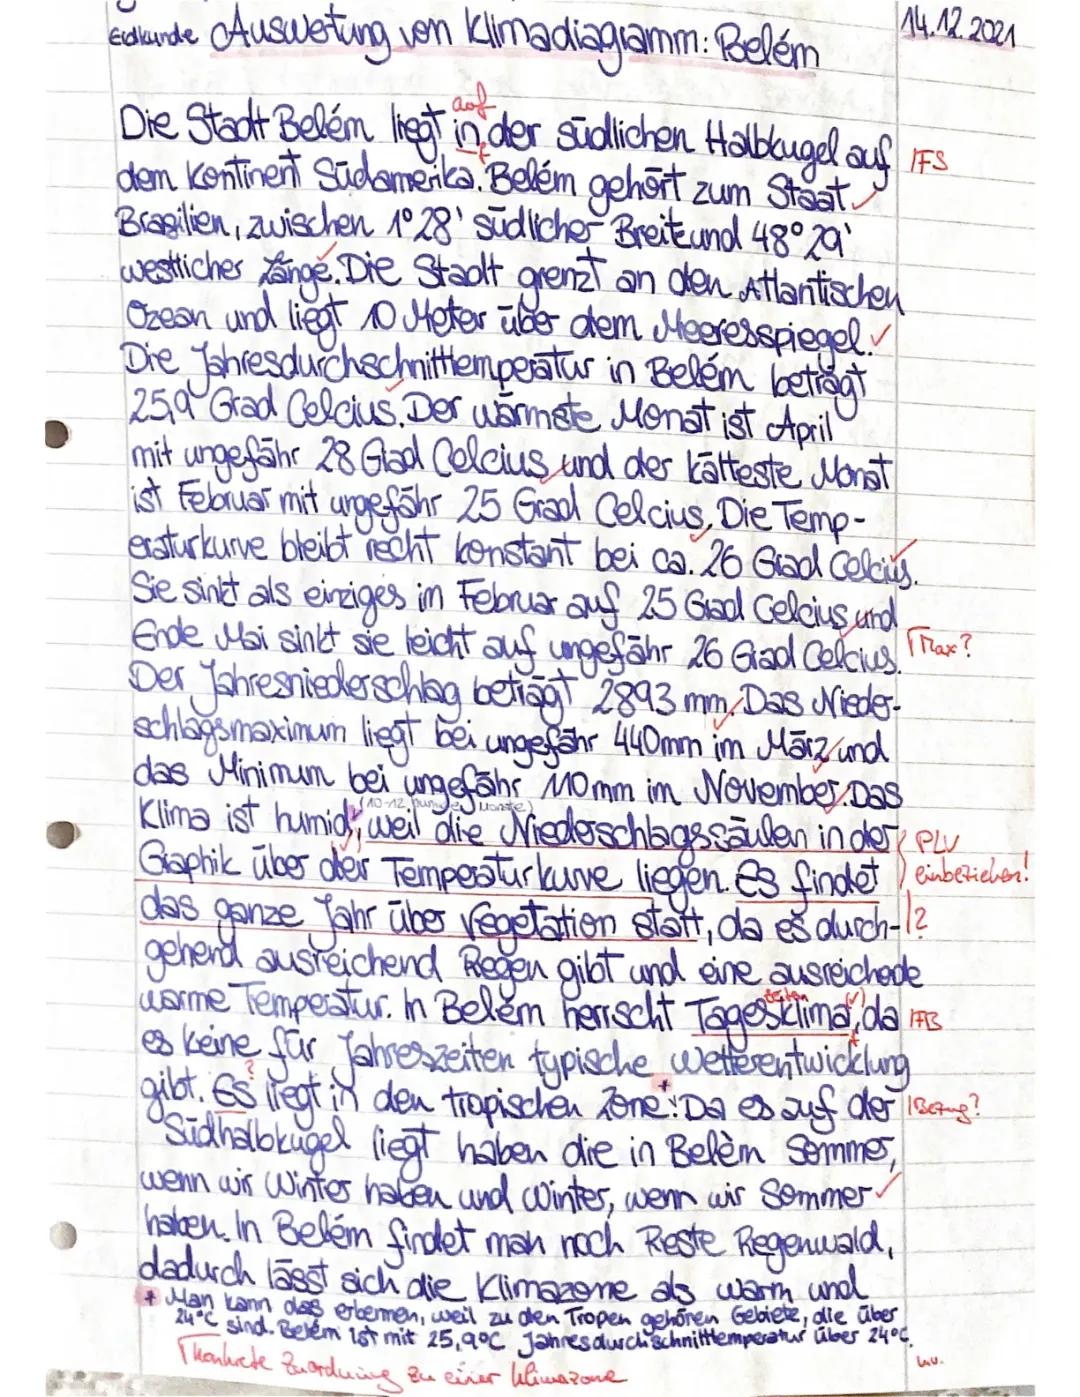 Erdkunde Auswertung von Klimadiagramm: Belém
14.12.2021
Die Stadt Belém liegt in der südlichen Halbkugel auf
auf
IFS
dem Kontinent Südamerika. Belém gehört zum Staat
Brasilien, zwischen 1° 28' südlicher Breite und 48° 29'
westlicher Länge. Die Stadt grenzt an den Atlantischen
Ozean und liegt 10 Meter über dem Meeresspiegel.
Die Jahresdurchschnittemperatur in Belém beträgt
25,9 Grad Celcius. Der wärmste Monat ist April
mit ungefähr 28 Grad Celcius und der kälteste Monat
ist Februar mit ungefähr 25 Grad Celcius. Die Temp-
eraturkurve bleibt recht konstant bei ca. 26 Grad Celcius.
Sie sinkt als einziges im Februar auf 25 Grad Celcius und
Ende Mai sinkt sie leicht auf ungefähr 26 Grad Celcius.
Max?
Der Jahresniederschlag beträgt 2893 mm. Das Nieder-
schlagsmaximum liegt bei ungefähr 440mm im März und
das Minimum bei ungefähr 110mm im November. Das
(10-12 humide Monate)
Klima ist humid, weil die Niederschlagssäulen in der
PLV
Graphik über der Temperaturkurve liegen. Es findet
einbeziehen!
das ganze Jahr über Vegetation statt, da es durch-
?
gehend ausreichend Regen gibt und eine ausreichende
warme Temperatur. In Belém herrscht Tagesklima, da
zeiten
(√)
IFB
es keine für Jahreszeiten typische Wetterentwicklung
gibt. Es liegt in den tropischen Zone. Da es auf der
?
+
Bezug?
Südhalbkugel liegt haben die in Belèm Sommer,
wenn wir Winter haben und Winter, wenn wir Sommer
haben. In Belém findet man noch Reste Regenwald,
dadurch lässt sich die Klimazone als warm und
+ Man kann das erkennen, weil zu den Tropen gehören Gebiete, die über
24°C sind. Belém ist mit 25,9°C Jahresdurchschnittemperatur über 24°C.
Konkrete Zuordnung zu einer Klimazone